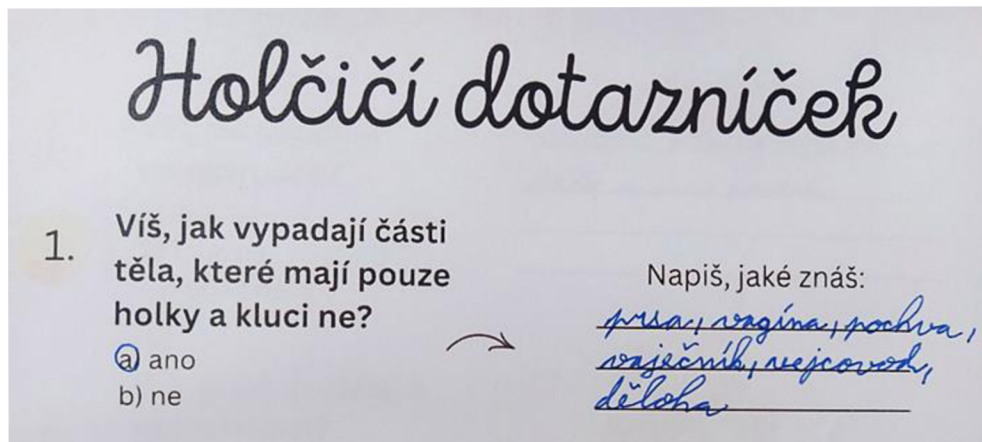 Holčičí dotazníček
1. Víš, jak vypadají části
těla, které mají pouze
holky a kluci ne?
a) ano
b) ne
Napiš, jaké znáš:
prsa, vagína, pochva,
vaječník, vejcovod,
děloha